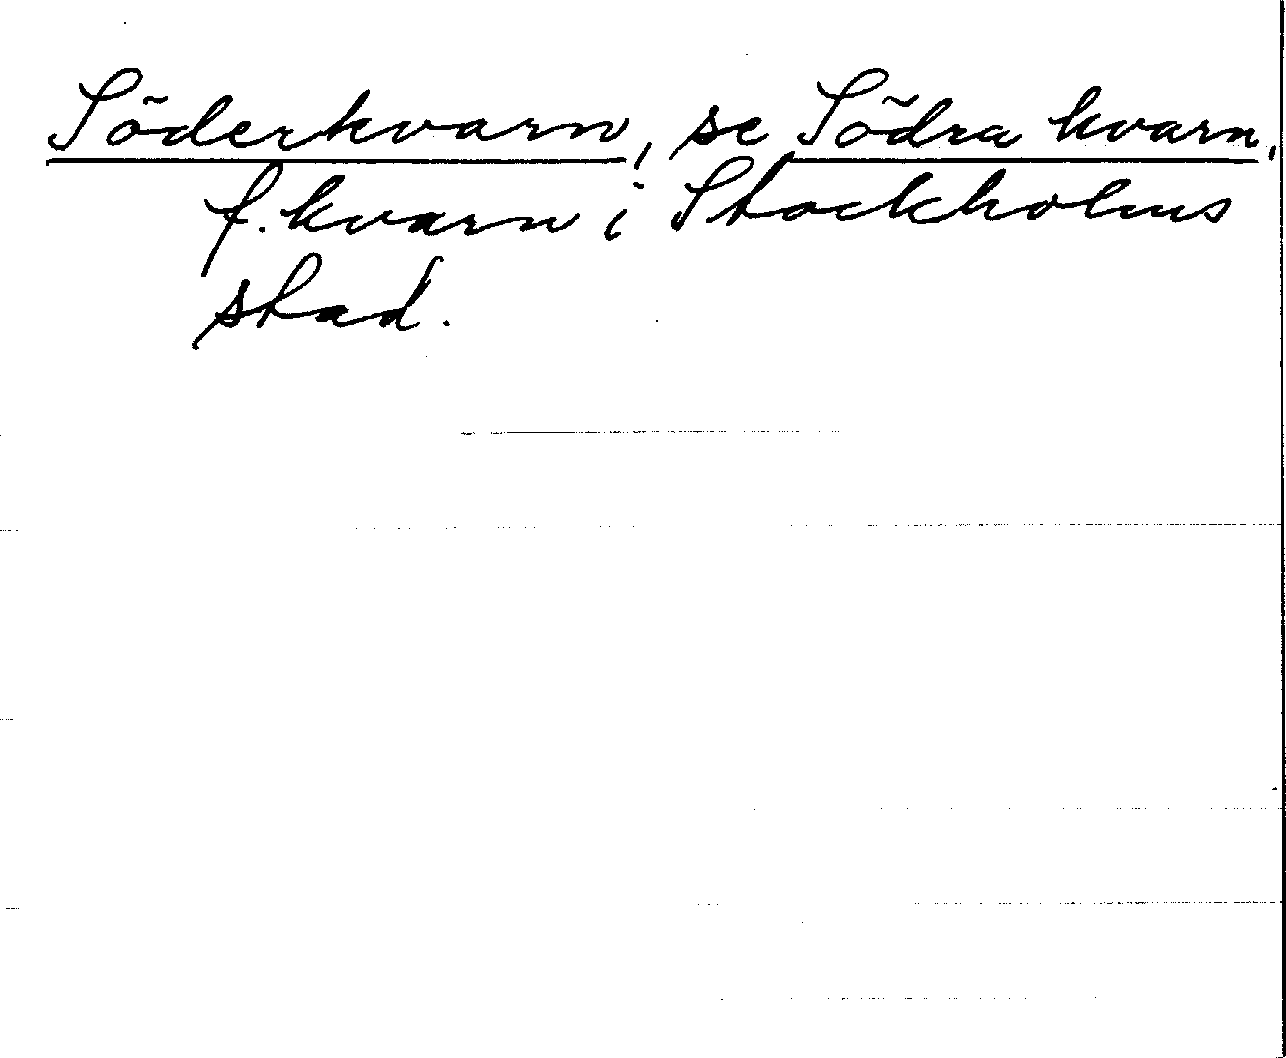 Söderkvarn, se Södra kvarn,
f. kvarn i Stockholms
stad.